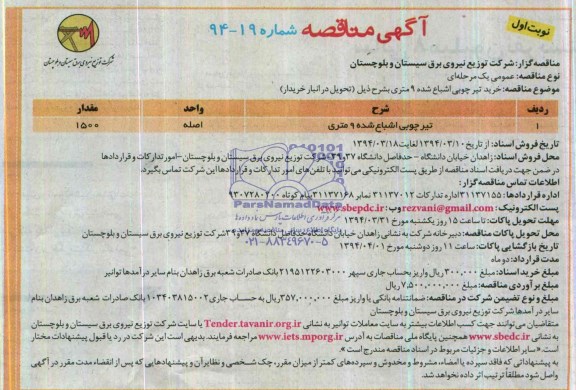 نوبت اول
آگهی مناقصه شماره ۱۹-۹۴
شرکت توزیع نیروی برق سیستان و بلوچستان
مناقصه گزار: شرکت توزیع نیروی برق سیستان و بلوچستان
نوع مناقصه: عمومی یک مرحله‌ای
موضوع مناقصه: خرید تیر چوبی اشباع شده ۹ متری بشرح ذیل (تحویل در انبار خریدار)
ردیف شرح واحد مقدار
۱ تیر چوبی اشباع شده ۹ متری اصله ۱۵۰۰
تاریخ فروش اسناد: از تاریخ ۱۳۹۴/۰۳/۱۰ لغایت ۱۳۹۴/۰۳/۱۸
محل فروش اسناد: زاهدان خیابان دانشگاه - حدفاصل دانشگاه ۳۷و۳۹ شرکت توزیع نیروی برق سیستان و بلوچستان-امور تدارکات و قراردادها
در ضمن جهت دریافت اسناد مناقصه از طریق پست الکترونیکی می‌توانید با تلفن‌های امور تدارکات و قراردادها این شرکت تماس بگیرد.
اطلاعات تماس مناقصه گزار:
اداره قراردادها: ۳۱۱۳۷۱۵۵ اداره تدارکات ۳۱۱۳۷۰۱۲ نمابر ۳۱۱۳۷۱۶۸ پیام کوتاه
پست الکترونیک: rezvani@gmail.com وب: www.sbepdc.ir
مهلت تحویل پاکات: تا ساعت ۱۵ روز یکشنبه مورخ ۱۳۹۴/۰۳/۳۱
محل تحویل پاکات مناقصه: دبیرخانه شرکت به نشانی زاهدان خیابان دانشگاه حدفاصل دانشگاه ۳۷و۳۹ شرکت توزیع نیروی برق سیستان و بلوچستان
تاریخ بازگشایی پاکات: ساعت ۱۱ روز دوشنبه مورخ ۱۳۹۴/۰۴/۰۱
مدت قرارداد: دو ماه
مبلغ خرید اسناد: مبلغ ۳۰۰,۰۰۰ ریال واریز بحساب جاری سپهر ۲۱۹۵۱۲۲۶۰۳۰۰۰ بانک صادرات شعبه برق زاهدان بنام سایر درآمدها توانیر
مبلغ برآوردی مناقصه: مبلغ ۷,۵۰۰,۰۰۰,۰۰۰ ریال
مبلغ و نوع تضمین شرکت در مناقصه: ضمانتنامه بانکی یا واریز مبلغ ۳۵۷,۰۰۰,۰۰۰ ریال به حساب جاری ۱۰۳۴۰۳۸۱۵۰۰۲ بانک صادرات شعبه برق زاهدان بنام
سایر درآمدها شرکت توزیع نیروی برق سیستان و بلوچستان
متقاضیان می‌توانند جهت کسب اطلاعات بیشتر به سایت معاملات توانیر به نشانی Tender.tavanir.org.ir یا سایت شرکت توزیع نیروی برق سیستان و بلوچستان
به نشانی www.sbepdc.ir همچنین پایگاه ملی مناقصات به آدرس www.iets.mporg.ir مراجعه فرمایند. بدیهی است این شرکت در رد یا قبول پیشنهادات مختار
است. «سایر اطلاعات و جزئیات مربوط در اسناد مناقصه مندرج است.»
به پیشنهاداتی که فاقد سپرده یا امضاء، مشروط و مخدوش و سپرده‌های کمتر از میزان مقرر، چک شخصی و نظایر آن و پیشنهادهایی که پس از انقضاء مدت مقرر در آگهی
واصل شود مطلقاً ترتیب اثر داده نخواهد شد.
ParsNamadData
۰۲۱-۸۸۳۴۹۶۷۰-۵